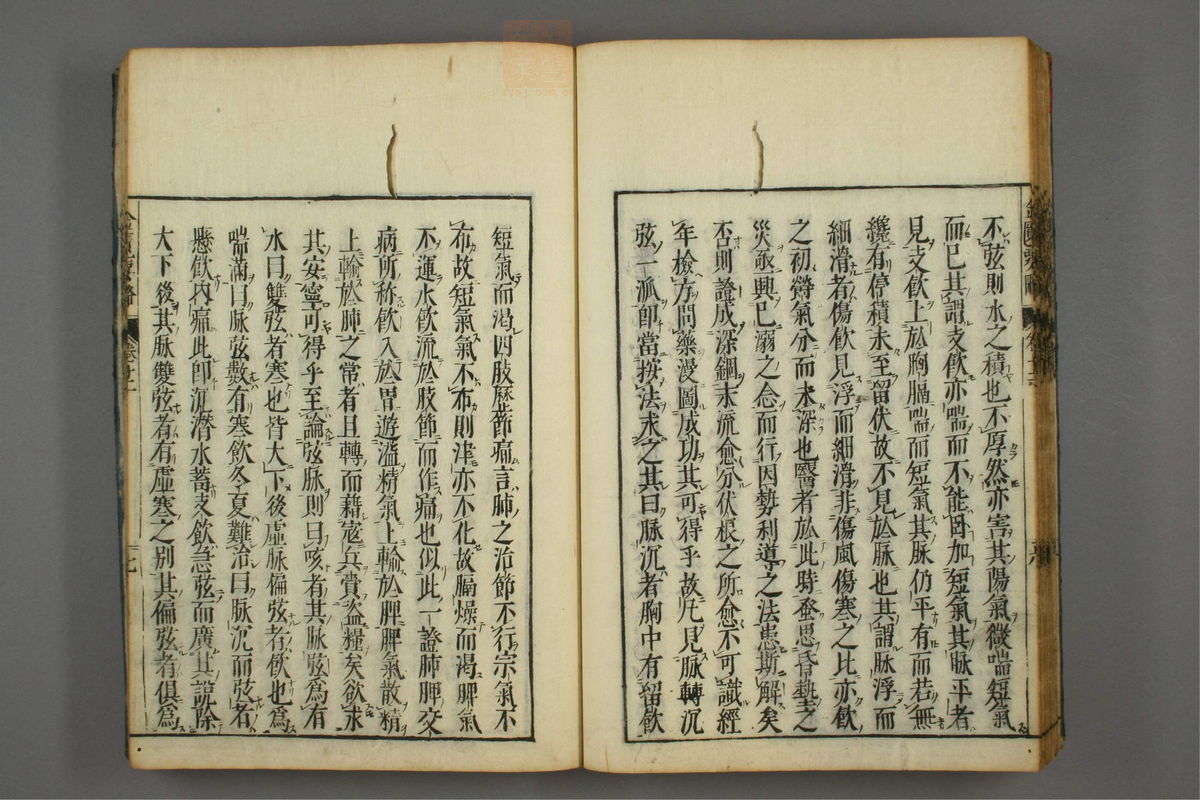 不弦則水之積也不厚然亦害其陽氣微喘短氣
而已其謂支飲亦喘而不能臥加短氣其脉平者
見支飲上於胸膈喘而短氣其脉仍平有而若無
纔有停積未至留伏故不見於脉也其謂脉浮而
細滑者傷飲見浮而細滑非傷風傷寒之比亦飲
之初勞氣分而未深也醫者於此時蚤思昏墊之
災亟興已溺之念而行因勢利導之法患斯解矣
否則證成深錮末流愈分伏根之所愈不可識經
年檢方問藥漫圖成功其可得乎故凡見脉轉沉
弦一派即當按法求之其曰脉沉者胸中有留飲
短氣而渴四肢歷節痛言肺之治節不行宗氣不
布故短氣氣不布則津亦不化故膈燥而渴脾氣
不運水飲流於肢節而作痛也似此一證肺脾交
病所称飲入於胃遊溢精氣上輸於脾脾氣散精
上輸於肺之常者且轉而藉寇兵賫盗糧矣欲求
其安寧可得乎至論弦脉則曰咳者其脉弦為有
水曰雙弦者寒也皆大下後虛脉偏弦者飲也為
喘滿曰脉弦數有寒飲冬夏難治曰脉沉而弦者
懸飲内痛此即沉潛水蓄支飲急弦而廣其說除
大下後其脉雙弦者有虛寒之别其偏弦者俱為